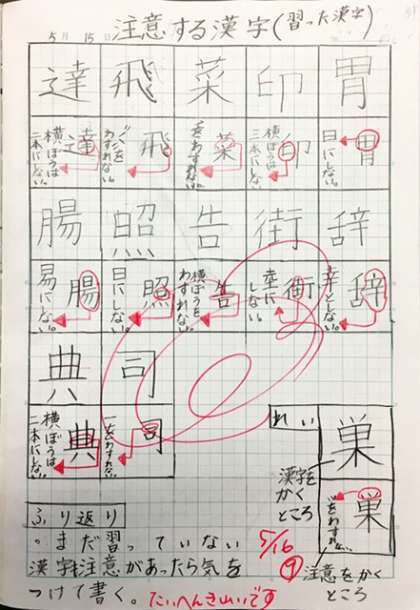 5月 15日 注意する漢字(習った漢字)
達 飛 菜 印 胃
達 横ぼうは二本にしない。
飛 をわすれない。
菜 をわすれない。
印 横ぼうは三本にしない。
胃 日にしない。
腸 照 告 街 辞
腸 易にしない。
照 日にしない。
告 横ぼうをわすれない。
街 にしない。
辞 としない。
典 司
典 横ぼうは二本にしない。
司 一をわすれない。
れい
巣
漢字をかくところ
巣 をわすれない。
注意をかくところ
ふり返り
。まだ習っていない
漢字注意があったら気を
つけて書く。
5/16
たいへんきれいです